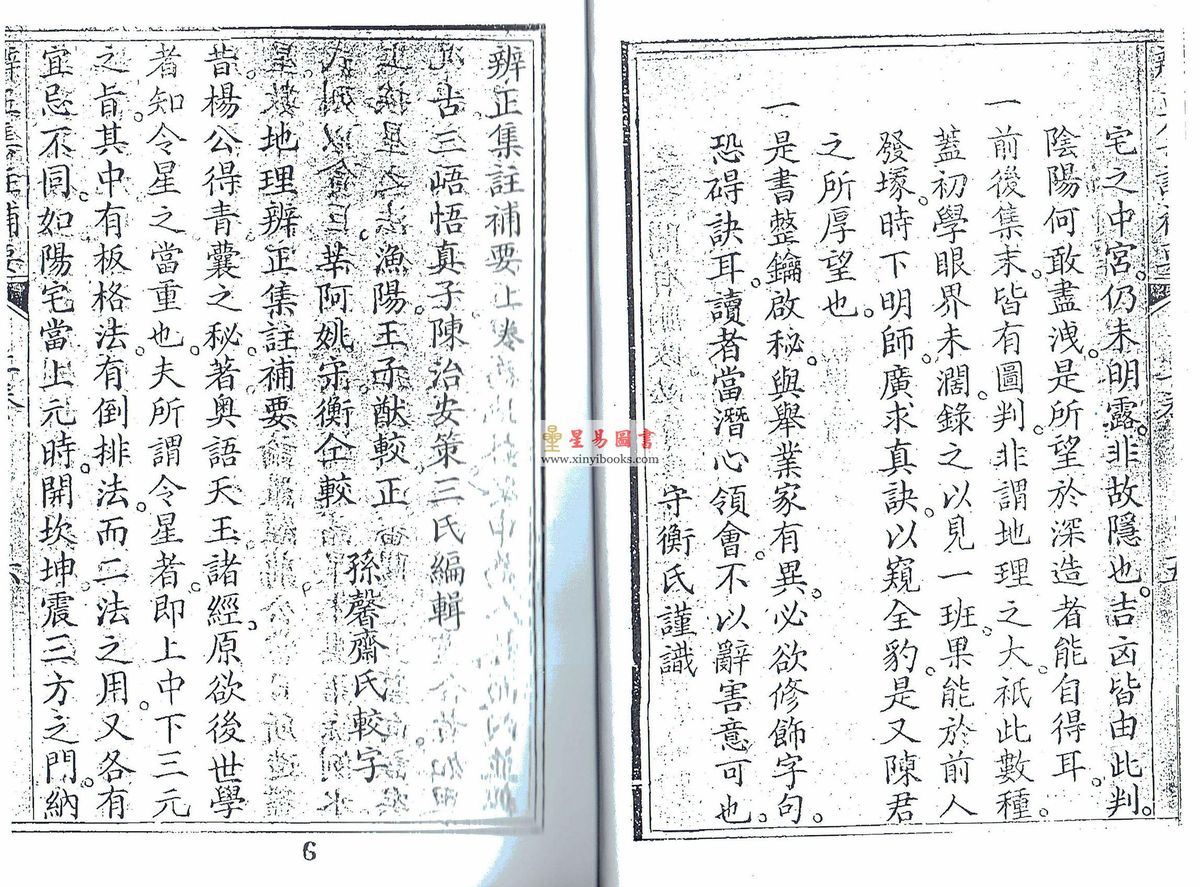 宅之中宮。仍未明露。非故隱也。吉凶皆由此判。
陰陽何敢盡洩。是所望於深造者能自得耳。
一前後集末。皆有圖判。非謂地理之大。祇此數種。
蓋初學眼界未濶。錄之以見一班。果能於前人
發塚。時下明師。廣求真訣。以窺全豹。是又陳君
之所厚望也。
一是書整鑰啟秘。與舉業家有異。必欲修飾字句。
恐碍訣耳。讀者當潛心領會。不以辭害意可也。
守衡氏謹識
辨正集註補要上卷
古三峿悟真子陳治安策三氏編輯
漁陽王子猷較正
孫馨齋氏較字
阿姚守衡仝較
地理辨正集註補要
昔楊公得青囊之秘。著奥語天玉諸經。原欲後世學
者知令星之當重也。夫所謂令星者。即上中下三元
之旨。其中有板格法。有倒排法。而二法之用。又各有
宜忌不同。如陽宅當上元時。開坎坤震三方之門。納
6
星易圖書
www.xinyibooks.com